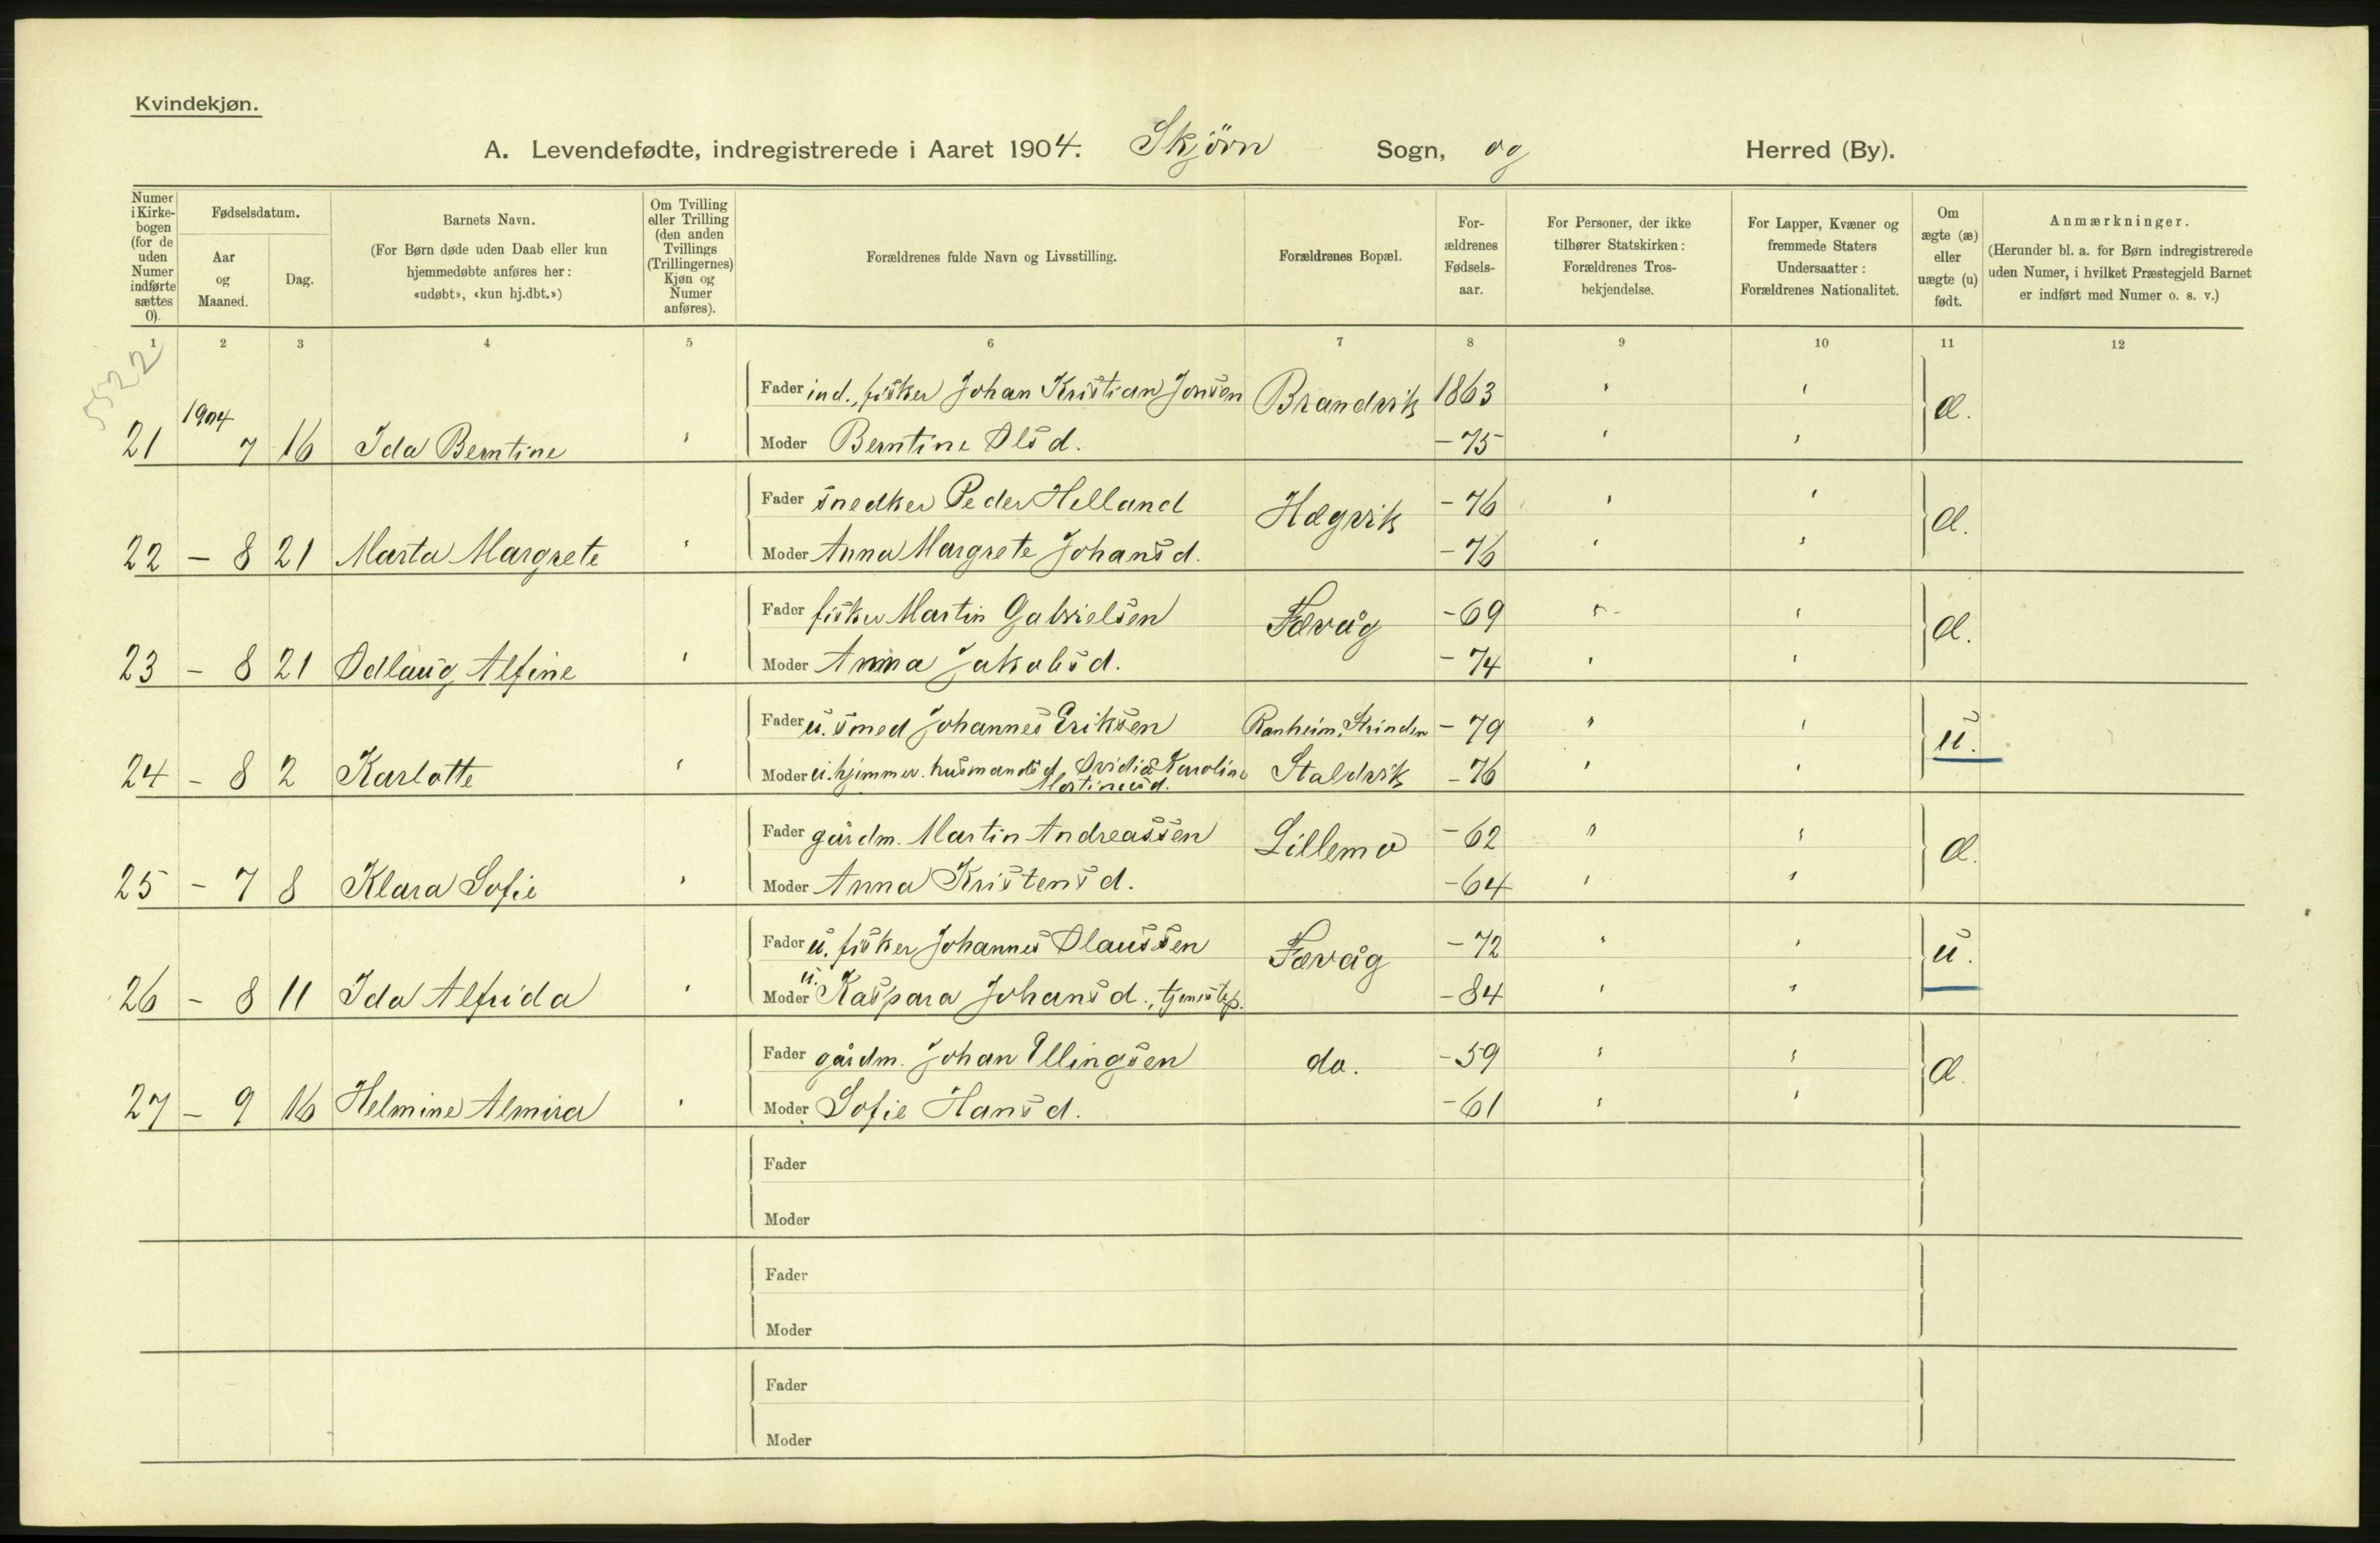 Kvindekjøn.
A. Levendefødte, indregistrerede i Aaret 1904. Skjörn Sogn, og Herred (By).
Numer i Kirke-bogen (for de uden Numer indførte sættes 0).
Fødselsdatum.
Aar og Maaned.
Dag.
Barnets Navn.
(For Børn døde uden Daab eller kun
hjemmedøbte anføres her:
«udøbt», «kun hj.dbt.»)
Om Tvilling
eller Trilling
(den anden
Tvillings
(Trillingernes)
Kjøn og
Numer
anføres).
Forældrenes fulde Navn og Livsstilling.
Forældrenes Bopæl.
For-
ældrenes
Fødsels-
aar.
For Personer, der ikke
tilhører Statskirken:
Forældrenes Tros-
bekjendelse.
For Lapper, Kvæner og
fremmede Staters
Undersaatter:
Forældrenes Nationalitet.
Om
ægte (æ)
eller
uægte (u)
født.
Anmærkninger.
(Herunder bl. a. for Børn indregistrerede
uden Numer, i hvilket Præstegjeld Barnet
er indført med Numer o. s. v.)
1 2 3 4 5 6 7 8 9 10 11 12
5522
Fader ind., fisker Johan Kristian Jonsen Brandvik 1863 æ.
21 1904 7 16 Ida Berntine Moder Berntine Olsd. - 75
Fader snedker Peder Helland Hægvik - 76 æ.
22 - 8 21 Marta Margrete Moder Anna Margrete Johansd. - 76
Fader fisker Martin Gabrielsen Fævåg - 69 æ.
23 - 8 21 Odlaug Alfine Moder Anna Jakobsd. - 74
Fader u. smed Johannes Eriksen Ranheim, Strinden - 79 u.
24 - 8 2 Karlotte Moder u. hjemmev. husmandsd. Ovidia Karoline Staldvik - 76
Mortinusd.
Fader gårdm. Martin Andreassen Lillemo - 62 æ.
25 - 7 8 Klara Sofie Moder Anna Kristensd. - 64
Fader u. fisker Johannes Olaussen Fævåg - 72 u.
26 - 8 11 Ida Alfrida Moder u. Kaspara Johansd., tjenestep. - 84
Fader gårdm. Johan Ellingsen do. - 59 æ.
27 - 9 16 Helmine Almira Moder Sofie Hansd. - 61
Fader
Moder
Fader
Moder
Fader
Moder